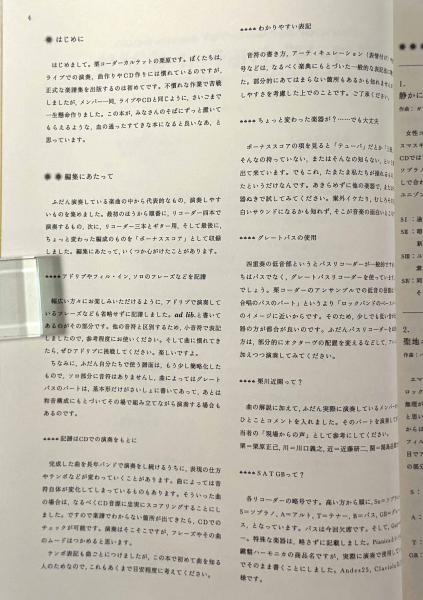 4
はじめに
はじめまして。栗コーダーカルテットの栗原です。ぼくたちは、
ライブでの演奏、曲作りやCD作りには慣れているのですが、
正式な楽譜集を出版するのは初めてです。不慣れな作業で苦戦
しましたが、メンバー一同、ライブやCDと同じように、さいごまで
一生懸命作りました。この本が、みなさんのそばにずっと置いて
もらえるような、血の通ったすてきな本になると良いなあ、と
思っています。
編集にあたって
ふだん演奏している楽曲の中から代表的なもの、演奏しやす
いものを集めました。最初のほうから順番に、リコーダー四本で
演奏するもの、次に、リコーダー三本とギター用、そして最後に、
ちょっと変わった編成のものを「ボーナススコア」として収録
しました。編集にあたって、いくつか心がけたことがあります。
****アドリブやフィル・イン、ソロのフレーズなどを記譜
幅広い方々にお楽しみいただけるように、アドリブで演奏して
いるフレーズなども省略せずに記譜しました。ad lib.と書いて
あるのがその部分です。他の音符と区別するため、小音符で表記
しましたので、参考程度にお使いください。そして曲に慣れてき
たら、ぜひアドリブに挑戦してください。楽しいですよ。
ちなみに、ふだん自分たちで使う譜面は、もう少し簡略化した
もので、ソロ部分に音符はありませんし、曲によってはグレート
バスのパートは、基本形だけがさいしょに書いてあって、あとは
和音構成にもとづいてその場で組み立てながら演奏する場合も
あるのです。
****記譜はCDでの演奏をもとに
完成した曲を長年バンドで演奏をし続けるうちに、表現の仕方
やテンポなどが変わっていくことがあります。曲によっては音
符自体が変化してしまっているものもあります。そういった曲
の場合は、なるべくCD音源に忠実にスコアリングすることにし
ました。ですので楽譜でわからない箇所が出てきたら、CDでの
チェックが可能です。演奏はそこそこですが、フレーズやその曲
のムードはつかめると思います。
テンポ表記も曲ごとにつけましたが、この本で初めて曲を知る
人のためなので、これもあくまで目安程度に考えてください。
****わかりやすい表記
音符の書き方、アーティキュレーション(表情付け
号などは、なるべく楽典にもとづいた一般的な表記
た。部分的にあてはまらない箇所もあるかも知れませ
しやすさを考慮した上でのことです。ご了承ください。
****ちょっと変わった楽器が?……でも大丈夫
ボーナススコアの項を見ると「テューバ」だとか
そんなの持っていない、またはそんなの知らない、とい
出て来ています。でもこれ、たまたま私たちが
たというだけなんです。あきらめずに他の楽器で、また
器ぬきで試してみてください。案外イケたり、むしろそ
白いサウンドになるかも知れず、そこが音楽の面白いとこ
****グレートバスの使用
四重奏の低音部というとバスリコーダーが一般的です
ちはバスでなく、グレートバスリコーダーを使っています
でしょう。栗コーダーのアンサンブルでの低音の役割
合唱のバスのパート」というより「ロックバンドのベース
のイメージに近いからです。そのため、少しでも低い音
器の方が都合が良いのです。ふだんバスリコーダーを
方は、部分的にオクターヴの配置を変えるなどして、ア
加えつつ演奏してみてください。
****栗川近関って?
曲の解説に加えて、ふだん実際に演奏しているメンバー
ひとことコメントを入れました。そのパートを演奏して
当者の「現場からの声」として参考にしてください。
栗=栗原正己、川=川口義之、近=近藤研二、関=関島岳郎
****SATGBって?
各リコーダーの略号です。高い方から順に、So=ソプラ
S=ソプラノ、A=アルト、T=テナー、B=バス、GB=グレ
ス、となっています。バスは今回欠席です。そして、
ー。特殊な楽器は、略さずに記載しました。Pianica
鍵盤ハーモニカの商品名ですが、実際に演奏で使用して
でそのまま書くことにしました。Andes25、Claviola
様です。
1.
静かに
女性コ
スマスキ
CDでは
ソプラノ
して合わ
ユニゾン
2.
聖地
エマ